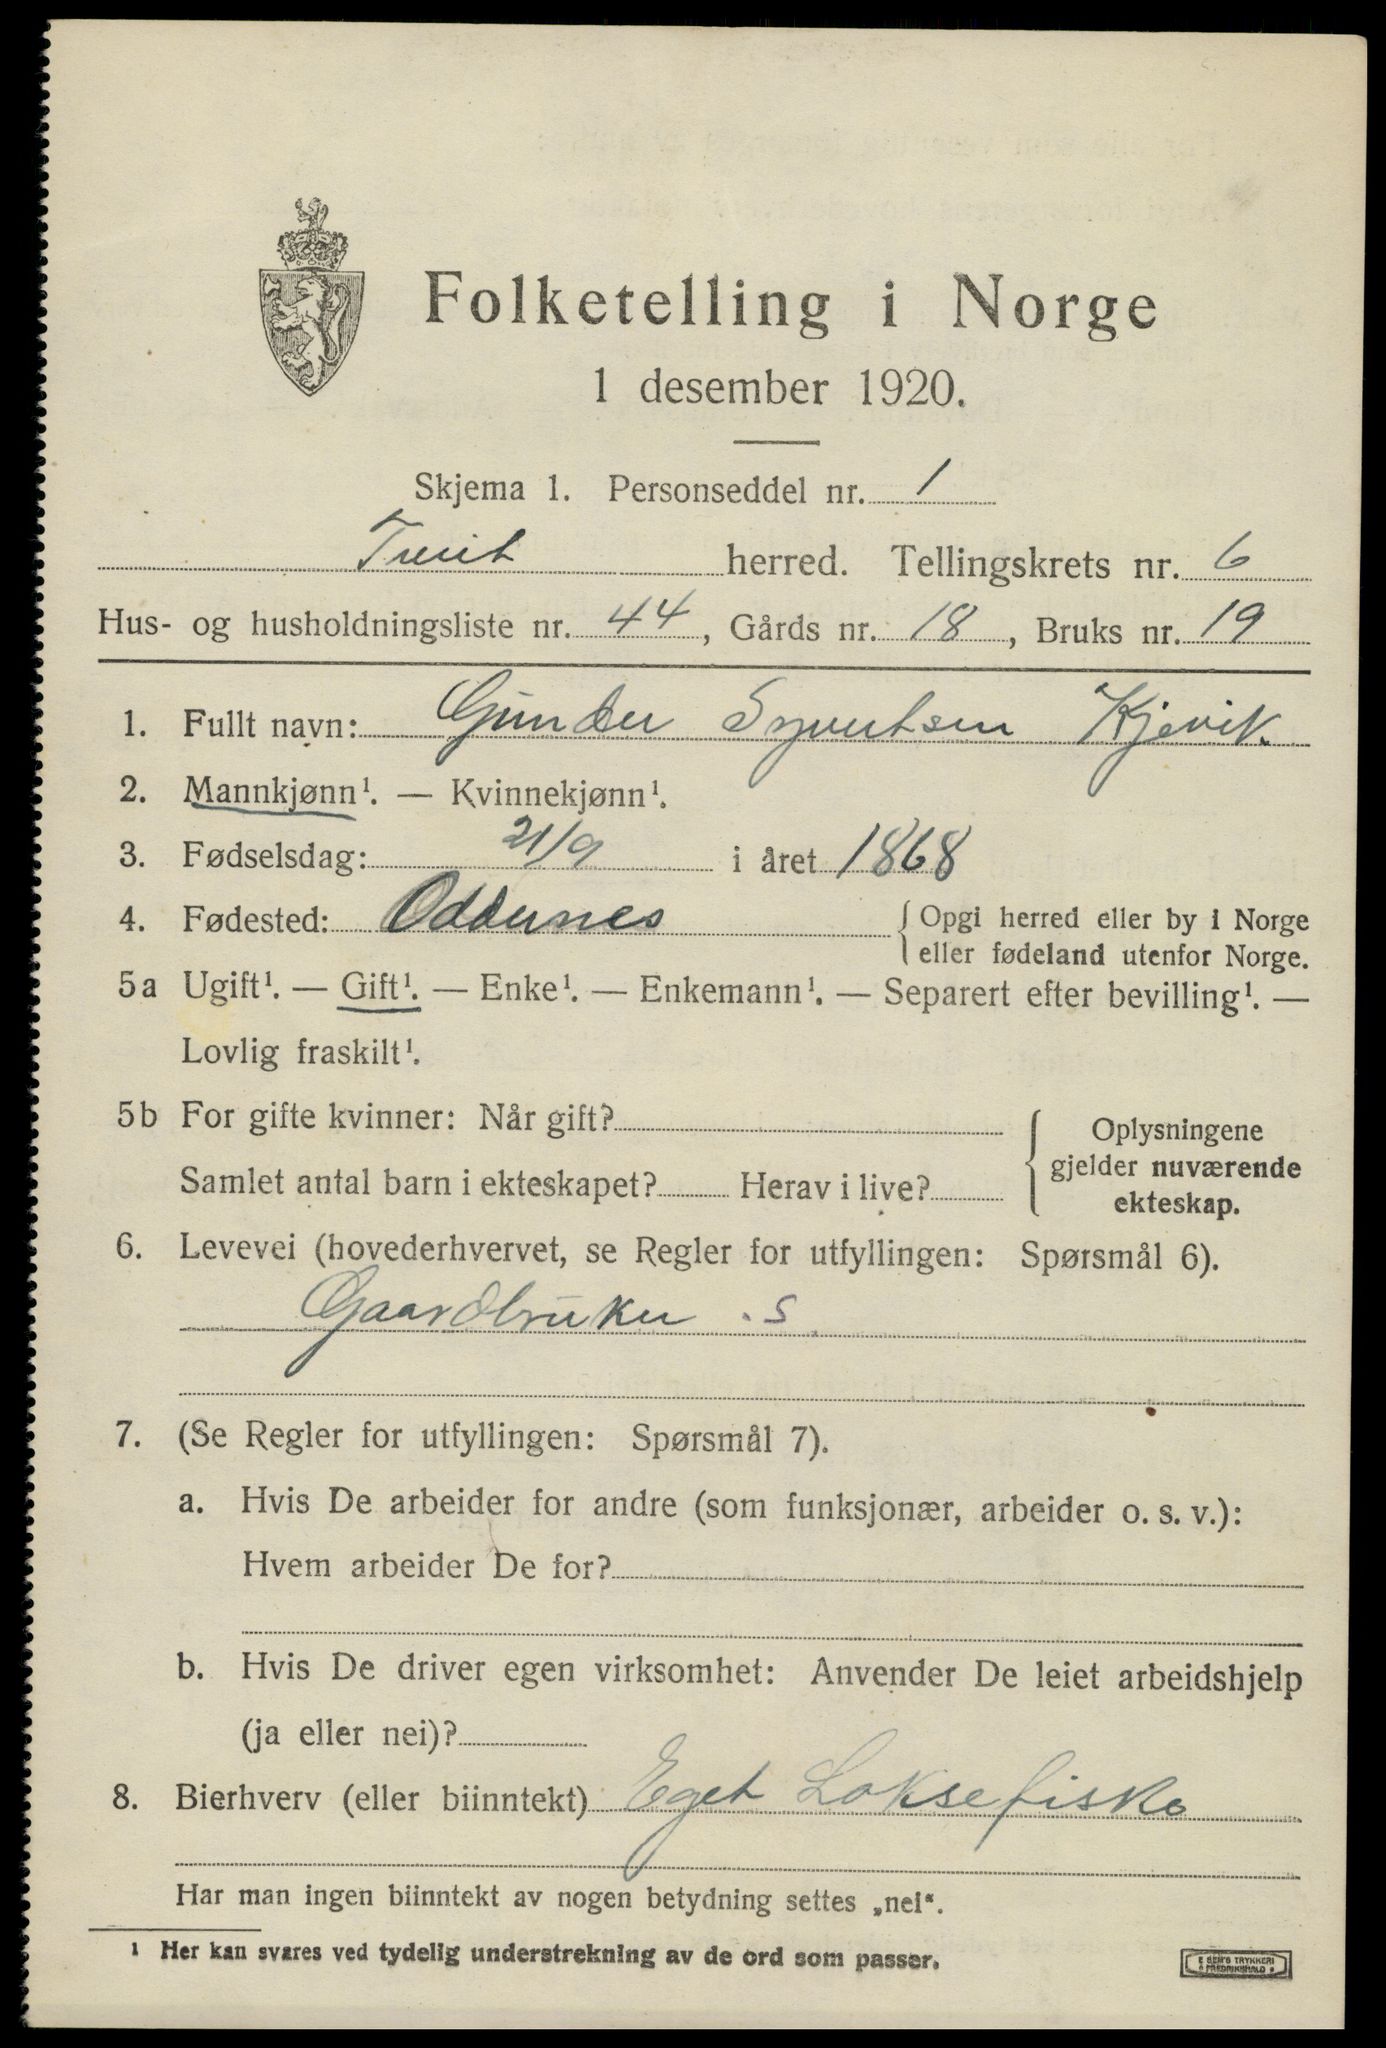 Folketelling i Norge
1 desember 1920.
Skjema 1. Personseddel nr. 1
Tveit herred. Tellingskrets nr. 6
Hus- og husholdningsliste nr. 44, Gårds nr. 18, Bruks nr. 19
1. Fullt navn: Gunder Syvertsen Kjevik.
2. Mannkjønn¹. — Kvinnekjønn¹.
3. Fødselsdag: 21/9 i året 1868
4. Fødested: Oddernes {Opgi herred eller by i Norge
eller fødeland utenfor Norge.
5a Ugift¹. — Gift¹. — Enke¹. — Enkemann¹. — Separert efter bevilling¹. —
Lovlig fraskilt¹.
5b For gifte kvinner: Når gift?
Samlet antal barn i ekteskapet? Herav i live?
Oplysningene
gjelder nuværende
ekteskap.
6. Levevei (hovederhvervet, se Regler for utfyllingen: Spørsmål 6).
Gaardbruker . S
7. (Se Regler for utfyllingen: Spørsmål 7).
a. Hvis De arbeider for andre (som funksjonær, arbeider o. s. v.):
Hvem arbeider De for?
b. Hvis De driver egen virksomhet: Anvender De leiet arbeidshjelp
(ja eller nei)?
8. Bierhverv (eller biinntekt) Eget Laksefiske
Har man ingen biinntekt av nogen betydning settes „nei“.
1 Her kan svares ved tydelig understrekning av de ord som passer.
E SEM'S TRYKKERI
FREDRIKSHALD